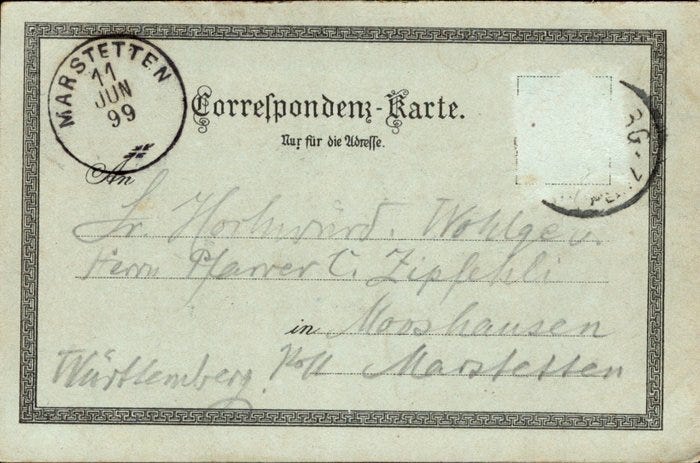 MARSTETTEN
11
JUN
99
Correspondenz-Karte.
Nur für die Adresse.
An
Sr. Hochwürd. Wohlgeb.
Herrn Pfarrer C.
in Mooshausen
Post Marstetten
Württemberg.